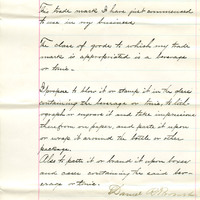 This trade mark I have just commenced
to use in my business.
The class of goods to which my trade
mark is appropriated is a beverage
or tonic.
I propose to blow it or stamp it in the glass
containing the beverage or tonic, to lith-
ograph or engrave it and take impressions
therefrom on paper, and paste it upon
or wrap it around the bottle or other
package.
Also to paste it or brand it upon boxes
and cases containing the said bev-
erage or tonic.